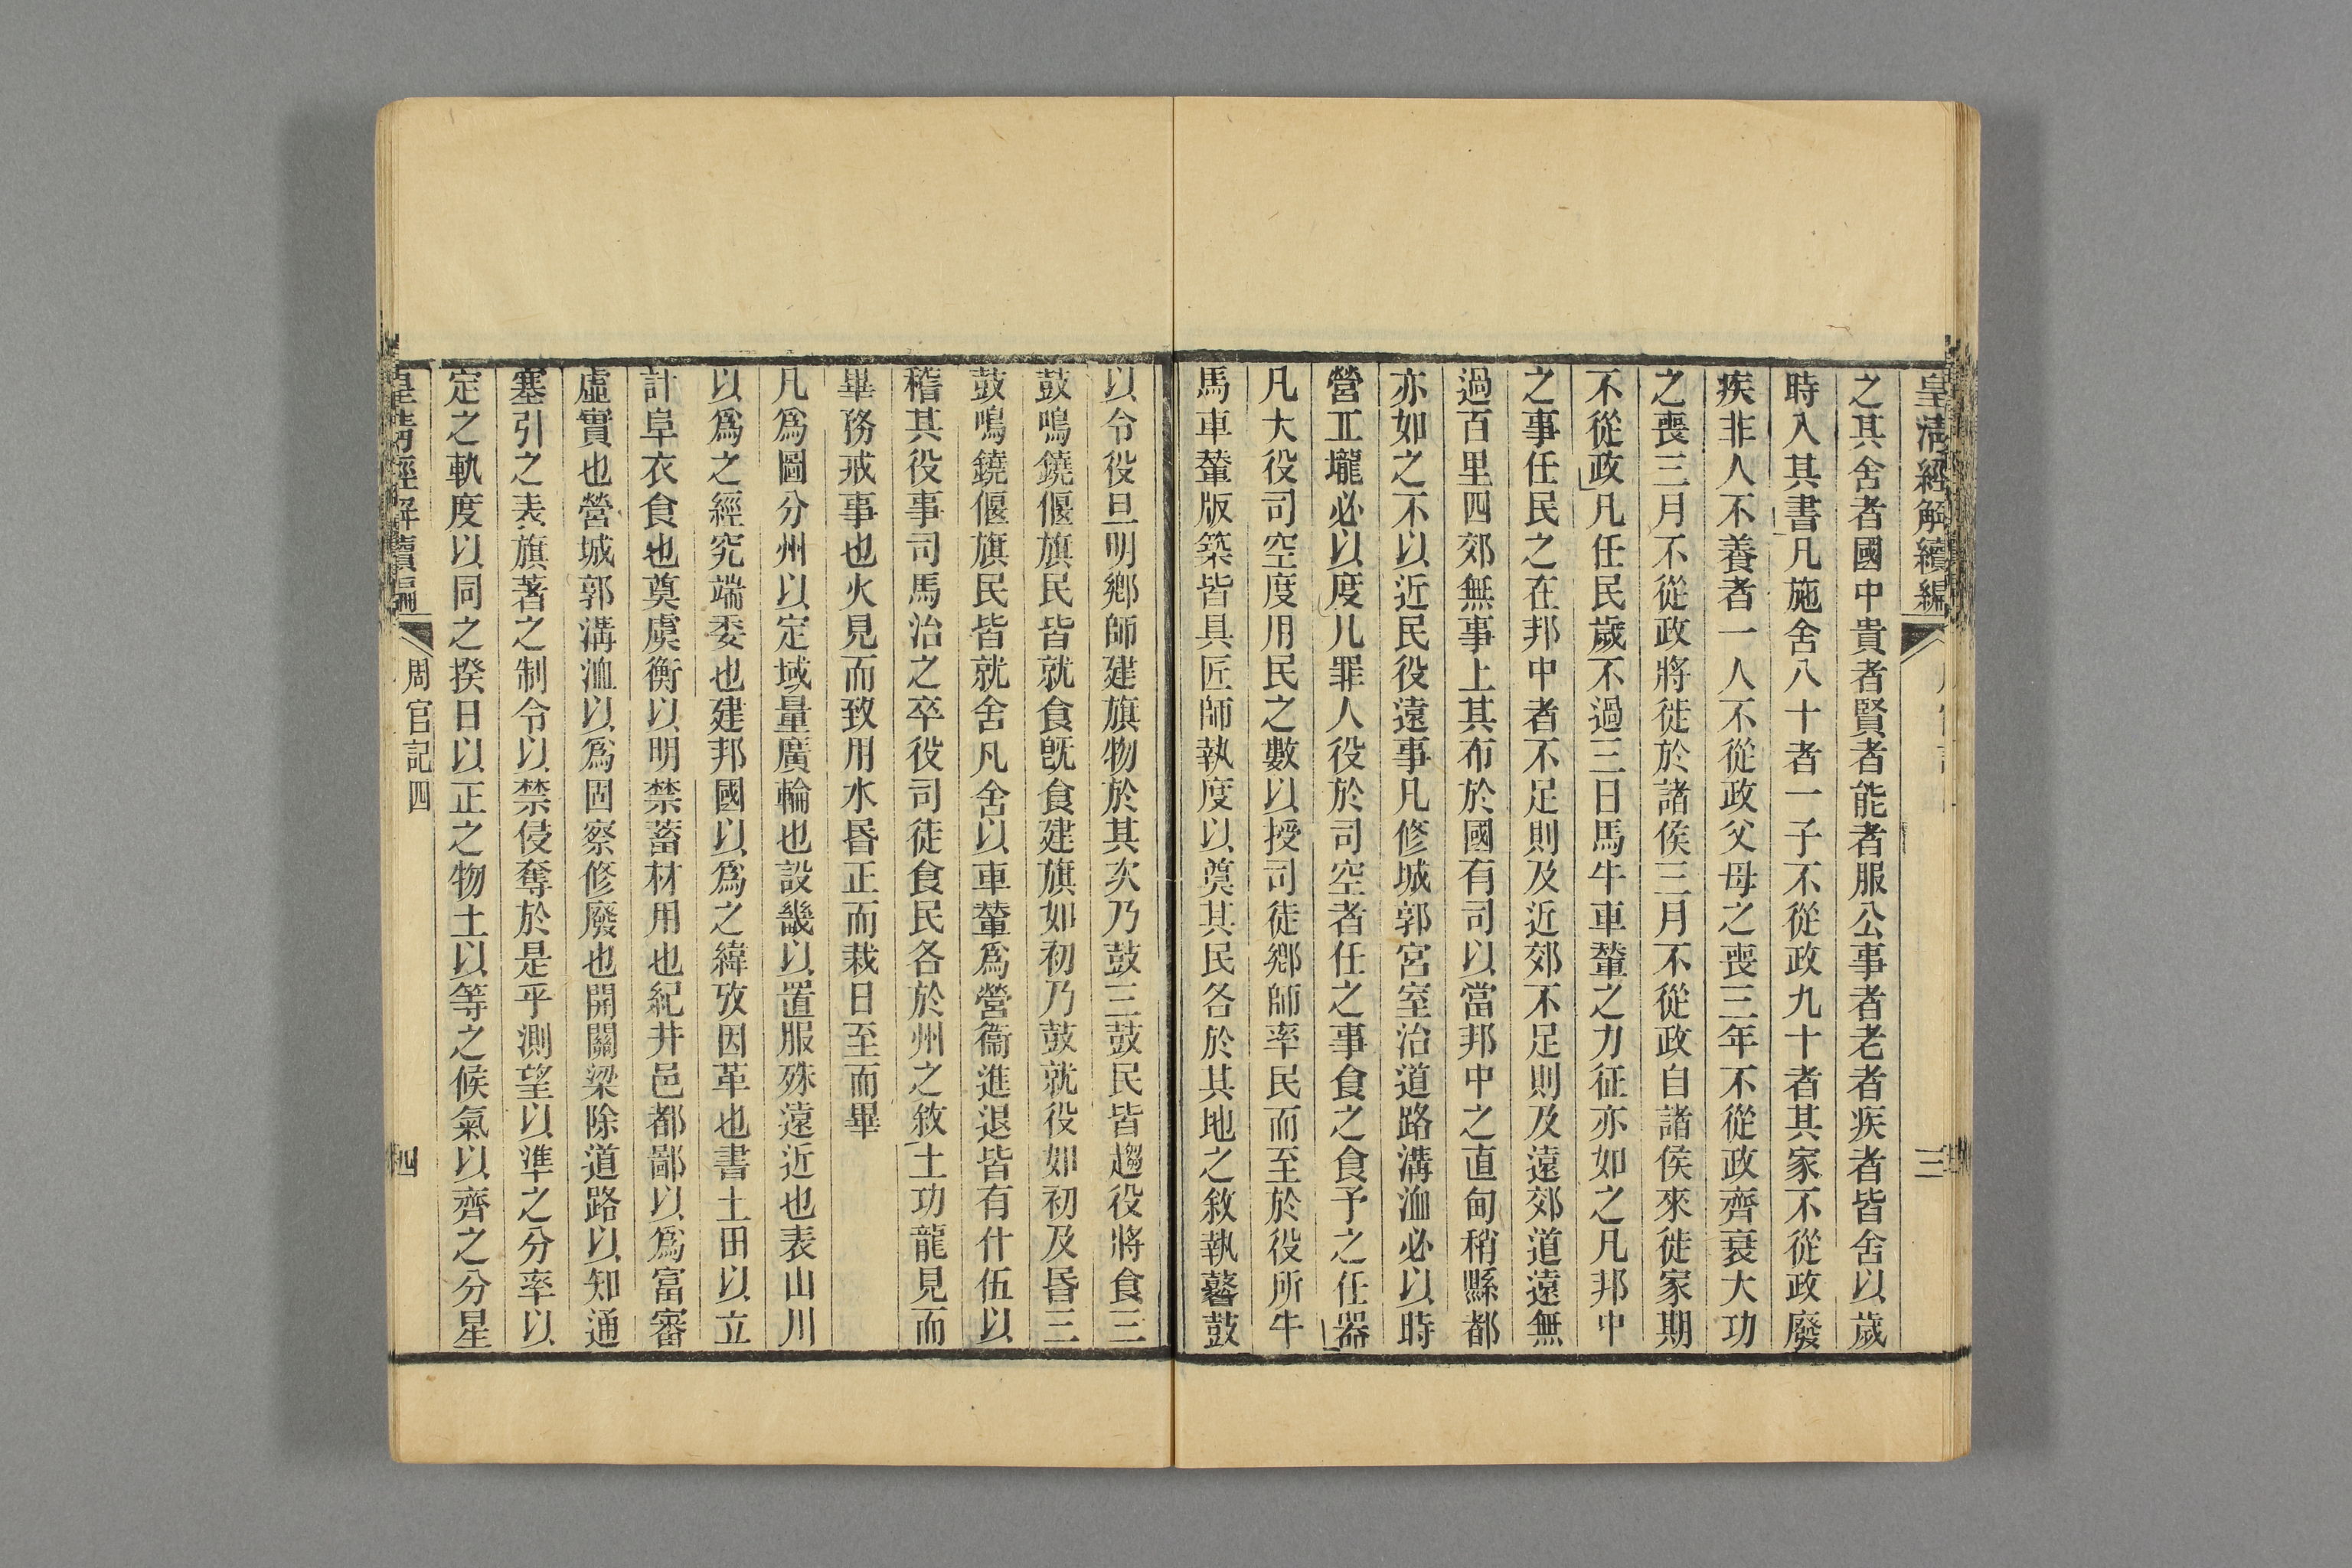 皇清經解續編
三
之其舍者國中貴者賢者能者服公事者老者疾者皆舍以歲
時入其書凡施舍八十者一子不從政九十者其家不從政廢
疾非人不養者一人不從政父母之喪三年不從政齊衰大功
之喪三月不從政將徙於諸侯三月不從政自諸侯來徙家期
不從政凡任民歲不過三日馬牛車輦之力征亦如之凡邦中
之事任民之在邦中者不足則及近郊不足則及遠郊道遠無
過百里四郊無事上其布於國有司以當邦中之直甸稍縣都
亦如之不以近民役遠事凡修城郭宮室治道路溝洫必以時
營丘壠必以度凡罪人役於司空者任之事食之食予之任器
凡大役司空度用民之數以授司徒鄉師率民而至於役所牛
馬車輦版築皆具匠師執度以奠其民各於其地之敘執鼛鼓
以令役旦明鄉師建旗物於其次乃鼓三鼓民皆趨役將食三
鼓鳴鐃偃旗民皆就食旣食建旗如初乃鼓就役如初及昏三
鼓鳴鐃偃旗民皆就舍凡舍以車輦爲營衞進退皆有什伍以
稽其役事司馬治之卒役司徒食民各於州之敘土功龍見而
畢務戒事也火見而致用水昏正而栽日至而畢
凡爲圖分州以定域量廣輪也設畿以置服殊遠近也表山川
以爲之經究端委也建邦國以爲之緯攷因革也書土田以立
計阜衣食也奠虞衡以明禁蓄材用也紀井邑都鄙以爲富審
虛實也營城郭溝洫以爲固察修廢也開關梁除道路以知通
塞引之表旗著之制令以禁侵奪於是乎測望以準之分率以
定之軌度以同之揆日以正之物土以等之候氣以齊之分星
皇清經解續編
周官記四
四